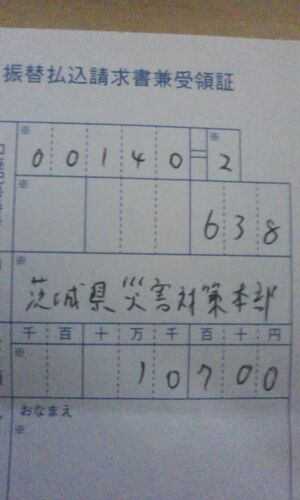 振替払込請求書兼受領証
※ ※
00140=2
※
638
※
茨城県災害対策本部
千百十万千百十円
※
10700
おなまえ
※